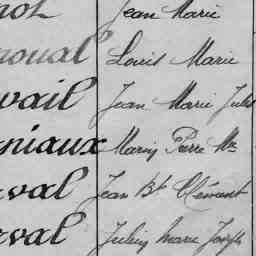 not Jean Marie
roual Louis Marie
vail Jean Marie Jules
niaux Marin Pierre Me
rval Jean Bte Clément
rval Julien Marie Joseph